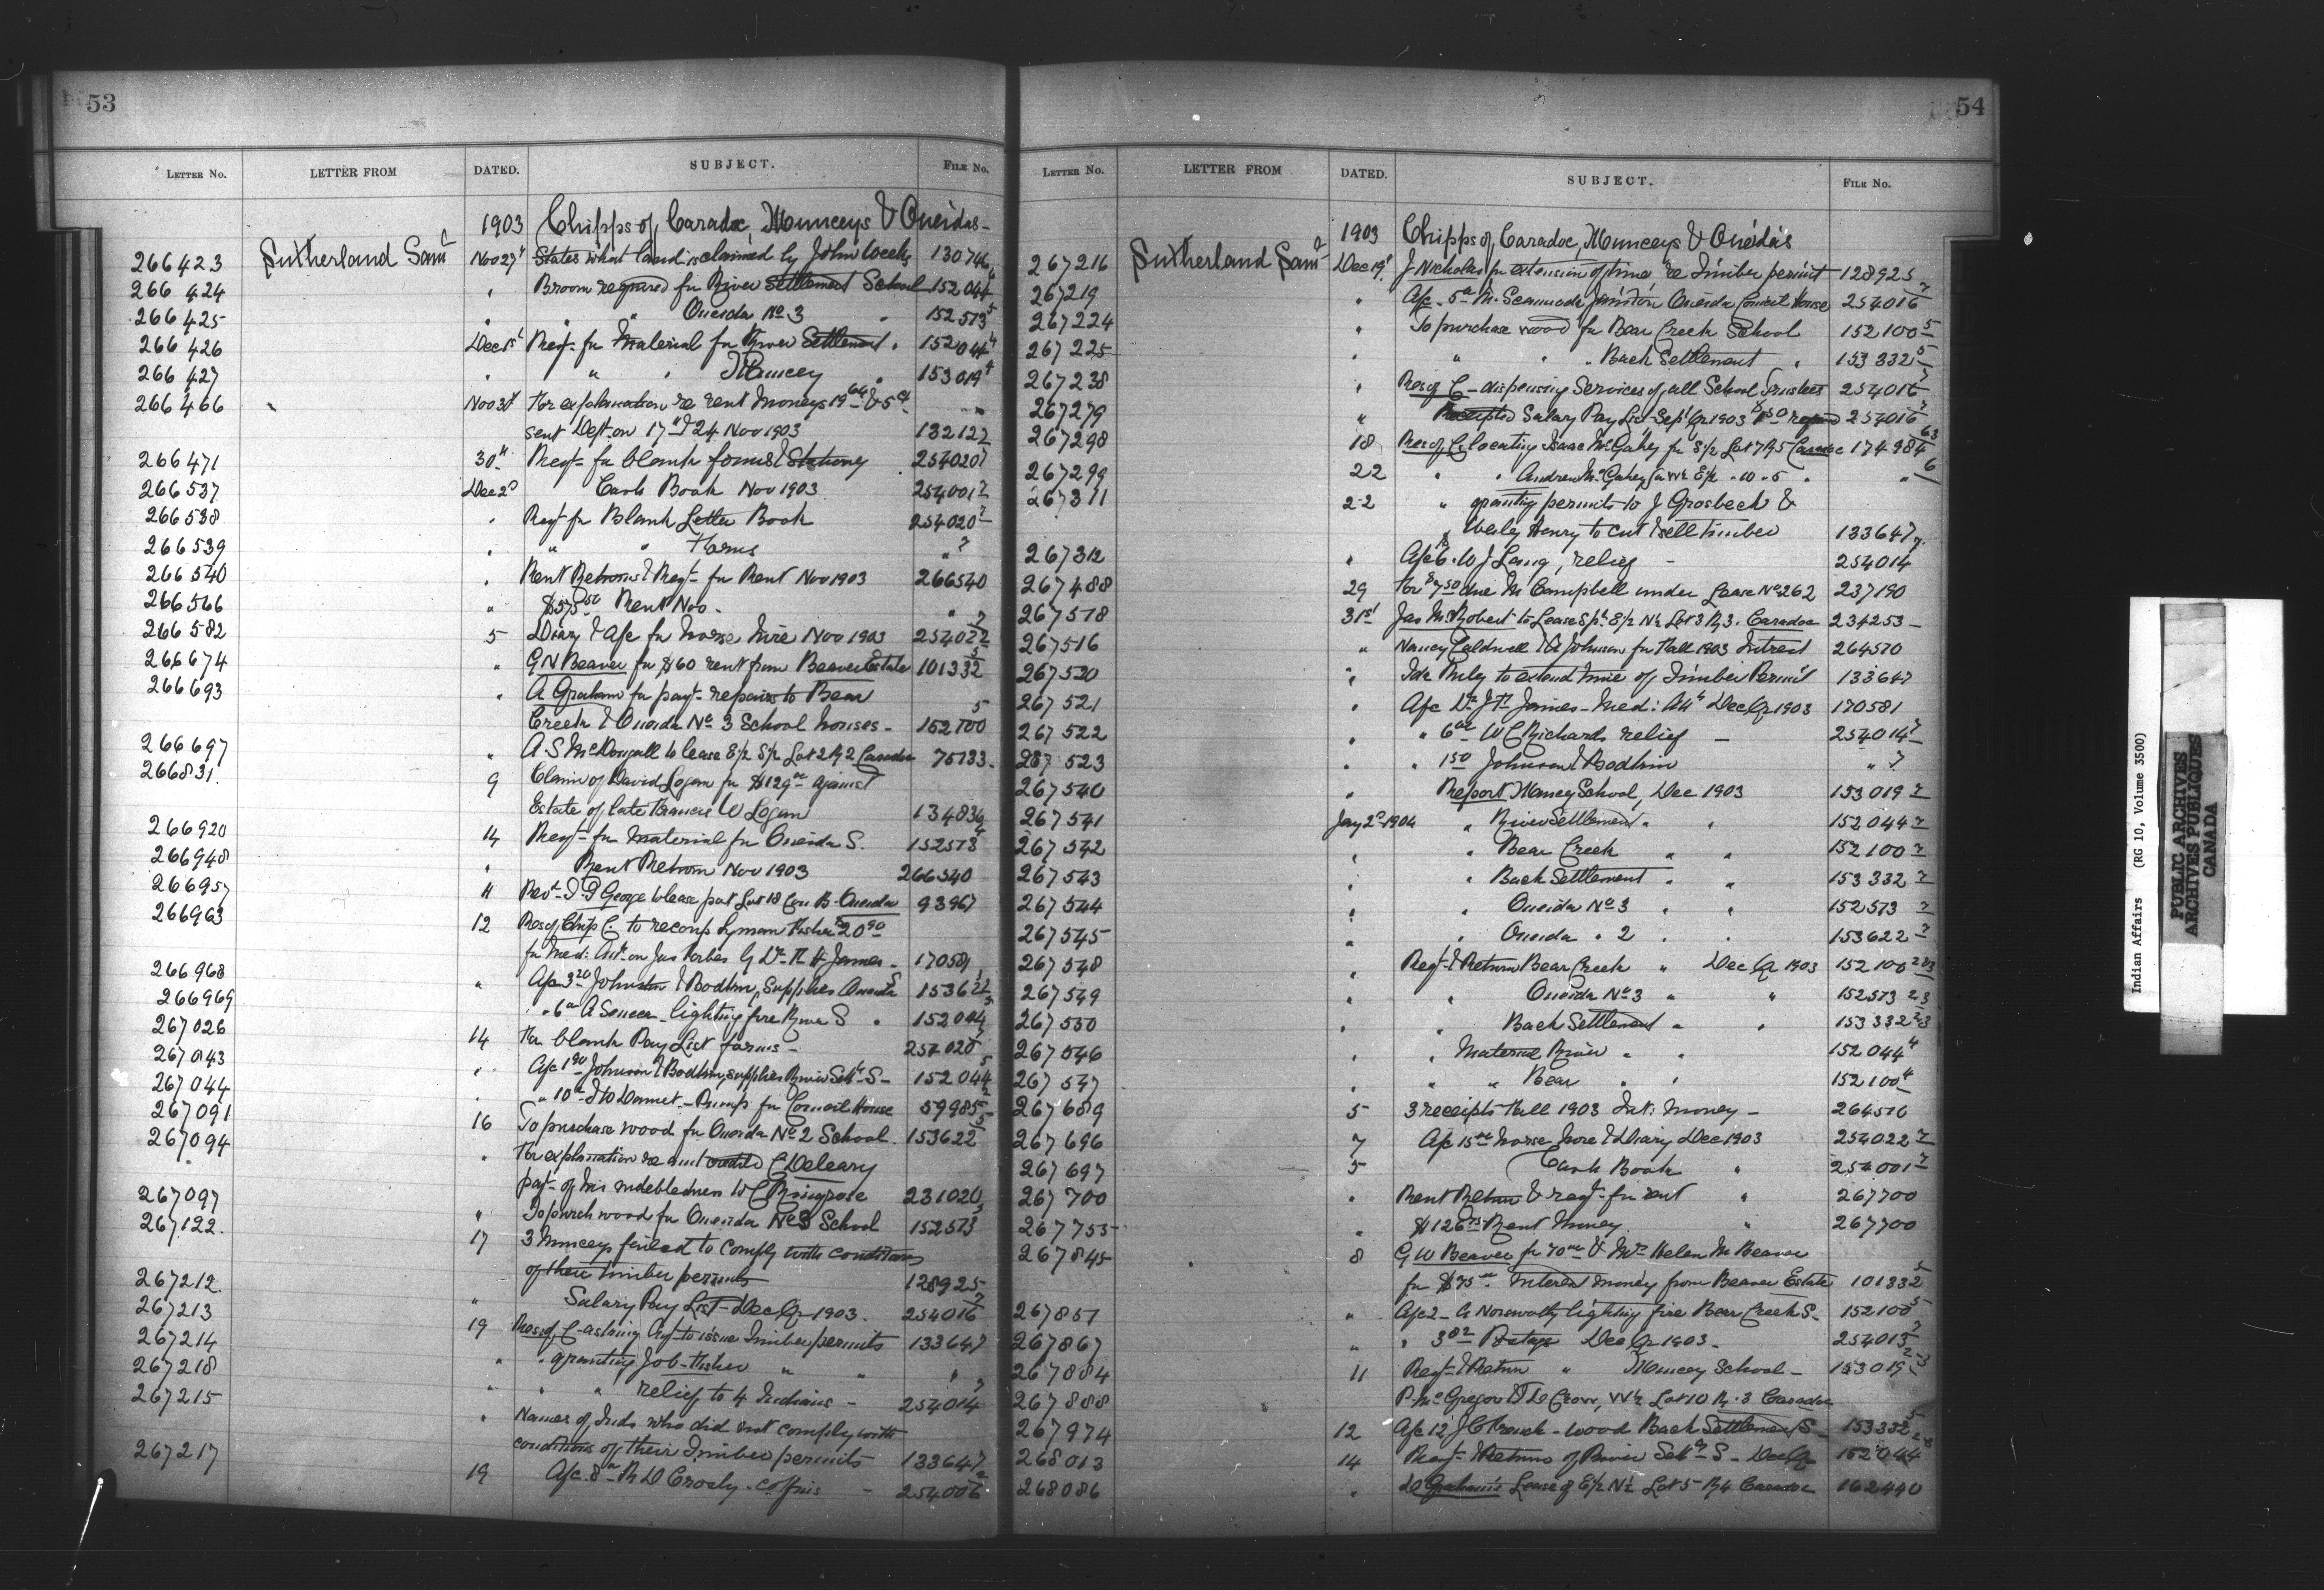 53
LETTER NO. LETTER FROM DATED. SUBJECT. FILE NO.
1903 Chipps of Caradoc, Munceys & Oneidas -
266423 Sutherland Saml Nov 27 States what land is claimed by John Weeks 130746
266424 " Broom required for River Settlement School 152044
266425 " " " Oneida No 3 " 152573 5
266426 Dec 1st Reqt for Material for River Settlement " 152044 4
266427 " " " Muncey " 153019 4
266466 Nov 30 For explanation re rent moneys
sent Dept on 17th & 24 Nov 1903 132122
266471 30th Reqt for blank forms & Stationery 254020 7
266537 Dec 2d Cash Book Nov 1903 254001 7
266538 " Reqt for Blank Letter Book 254020 7
266539 " " " Forms " 7
266540 " Rent Returns & Reqt for Rent Nov 1903 266540
266566 " $575 50 Rent Nov - "
266582 5 Diary & a/c for horse hire Nov 1903 254022 7
266674 " G N Beaver for $60 rent from Beaver Estate 101332 5
266693 " A Graham for payt repairs to Bear
Creek & Oneida No 3 School houses - 152100 5
266697 " A. S. McDougall to lease E 1/2 S 1/2 Lot 2 R 2 Caradoc 75133
266831 9 Claim of David Logan for $129 00 against
Estate of late Francis W Logan 134836
266920 14 Reqt for Material for Oneida S. 152573 4
266948 " Rent Return Nov 1903 266540
266957 11 Revd George to lease part Lot 18 Con B. Oneida 93967
266963 12 Res of Chip C. to recoup Lyman Fisher $20 90
for Med: Att. on Jas Forbes by Dr. James - 170581
266968 " A/c 3 20 Johnston & Bodkin, Supplies Oneida S 153622
266969 " " 6 00 A Seneca - lighting fire River S " 152044
267026 14 For blank Pay List forms - 254020
267043 " A/c 1 90 Johnston & Bodkin, supplies River Settt S - 152044 5
267044 " " 10 00 - Pump for Council House 59985
267091 16 To purchase wood for Oneida No 2 School. 153622 5
267094 " For explanation re amt credited C Deleary
payt of his indebtedness W C 231020
267097 " To purch wood for Oneida No 3 School 152573 5
267122. 17 3 Munceys failed to comply with conditions
of their timber permits 128925
267212 " Salary Pay List - Dec Qr 1903. 254016 7
267213 19 Res of C - asking Agt to issue timber permits 133647
267214 " " granting Job Fisher " " "
267218 " " " relief to 4 Indians - 254014 7
267215 " Names of Inds who did not comply with
conditions of their timber permits - 133647
267217 19 A/c 8 00 R D Crosly - coffins - 254006
54
LETTER NO. LETTER FROM DATED. SUBJECT. FILE NO.
1903 Chipps of Caradoc, Munceys & Oneidas
267216 Sutherland Saml Dec 19 J Nicholas for extension of time re timber permit 128925
267219 " A/c 5 00 M. Scanado Janitor Oneida Council House 254016 7
267224 " To purchase wood for Bear Creek School 152100 5
267225 " " " " Back Settlement " 153332 5
267238 " Res of C - dispensing Services of all School Trustees 254016 7
267279 " Receipted Salary Pay List Sept Qr 1903 254016 7
267298 18 Res of C. locating Isaac McGahey for S 1/2 Lot 7 R 5 Caradoc 174984 63
267299 22 " " Andrew McGahey E 1/2 " 10 " 5 " " 6
267311 22 " granting permits to J Grosbeck &
Wesley Henry to cut & sell timber 133647
267312 " A/c 6. W J Laing, relief - 254014 7
267488 29 For $7 50 due M Campbell under Lease No 262 237190
267518 31st Jas McRobert to Lease Sp't E 1/2 N 1/2 Lot 3 R 3. Caradoc 234253 -
267516 " Nancy Caldwell & A Johnson for Fall 1903 Interest 264570
267520 " to extend time of Timber Permit 133647
267521 " A/c Dr. James - Med: Att Dec Qr 1903 170581
267522 " " 6 00 W C Richards relief - 254014 7
267523 " " 1 50 Johnson & Bodkin " 7
267540 " Report Muncey School, Dec 1903 153019 7
267541 Jany 2d 1904 " River Settlement " " 152044 7
267542 " " Bear Creek " " 152100 7
267543 " " Back Settlement " " 153332 7
267544 " " Oneida No 3 " " 152573 7
267545 " " Oneida " 2 " " 153622 7
267548 " Reqt & Return Bear Creek " Dec Qr 1903 152100 2 & 3
267549 " " Oneida No 3 " " 152573 2 3
267550 " " Back Settlement " " 153332 2 3
267546 " " Material River " " 152044 4
267547 " " " Bear " " 152100 4
267689 5 3 receipts Fall 1903 Int: money - 264570
267696 7 A/c 15 00 horse hire & Diary Dec 1903 254022 7
267697 5 Cash Book " 254001 7
267700 " Rent Return & reqt for rent " 267700
267753 " $126 75 Rent Money " 267700
267845 8 G W Beaver for 70 00 & Mrs Helen M Beaver
for $75 00 Interest money from Beaver Estate 101332 5
267857 " A/c 2 - lighting fire Bear Creek S - 152100 5
267867 " " 3 02 Postage Dec Qr 1903 - 254013 7
267884 11 Reqt & Return " Muncey School - 153019 2-3
267888 P. McGregor Lot 10 R. 3 Caradoc
267974 12 A/c 12 - wood Back Settlement S - 153332 5
268013 14 Reqt & Return of River Settt S - Dec Qr 152044
268086 " D Graham's Lease of E 1/2 N 1/2 Lot 5 R 4 Caradoc 162440
Indian Affairs (RG 10, Volume 3500)
PUBLIC ARCHIVES
ARCHIVES PUBLIQUES
CANADA